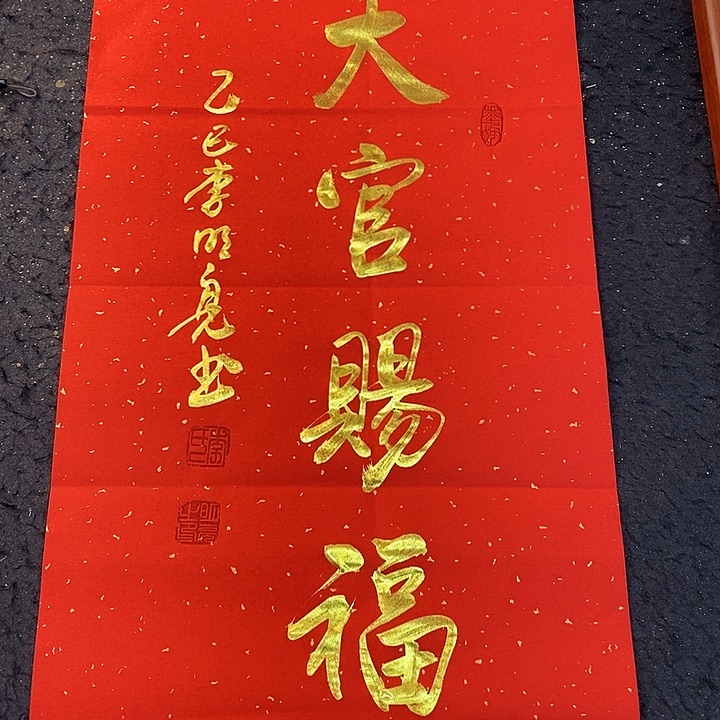 天官賜福
乙巳李明亮书